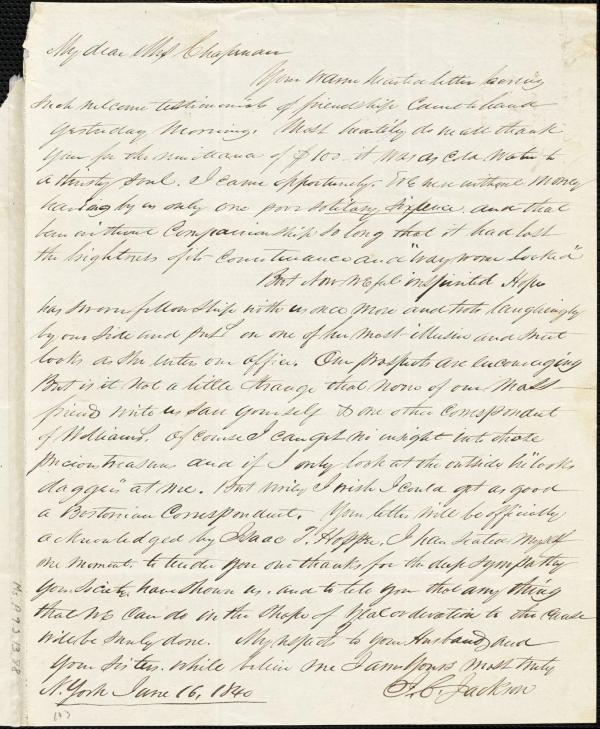 My dear Mrs Chapman
Your warm hearted letter bearing
such welcome testimonials of friendship came to hand
yesterday morning. Most heartily do we all thank
you for the remittance of $100 - it was as cold water to
a thirsty soul. I came opportunely. We were without money
having by us only one poor solitary sixpence and that
been without companionship so long that it had lost
the brightness of its countenance and "way worn looked"
But now we feel inspirited Hope
has sworn fellowship with us once more and trots laughingly
by our side and puts on one of her most illusive and sweet
looks as she enters our office. Our prospects are encouraging
But is it not a little strange that none of our Mass
friends write us save yourself & one other correspondent
of Williams. Of course I can get no insight into those
precious treasures and if I only look at the outside he "looks
daggers" at me. But verily I wish I could get as good
a Bostonian correspondent. Your letter will be officially
acknowledged by Isaac T. Hopper, I have seated myself
one moment to tender you our thanks for the deep sympathy
your Society have shown us, and to tell you that any thing
that we can do in the shape of zeal or devotion to the cause
will be surely done. My respects to your Husband and
your sisters while believe me I am yours most truly
N. York June 16, 1840 J. C. Jackson
(1)